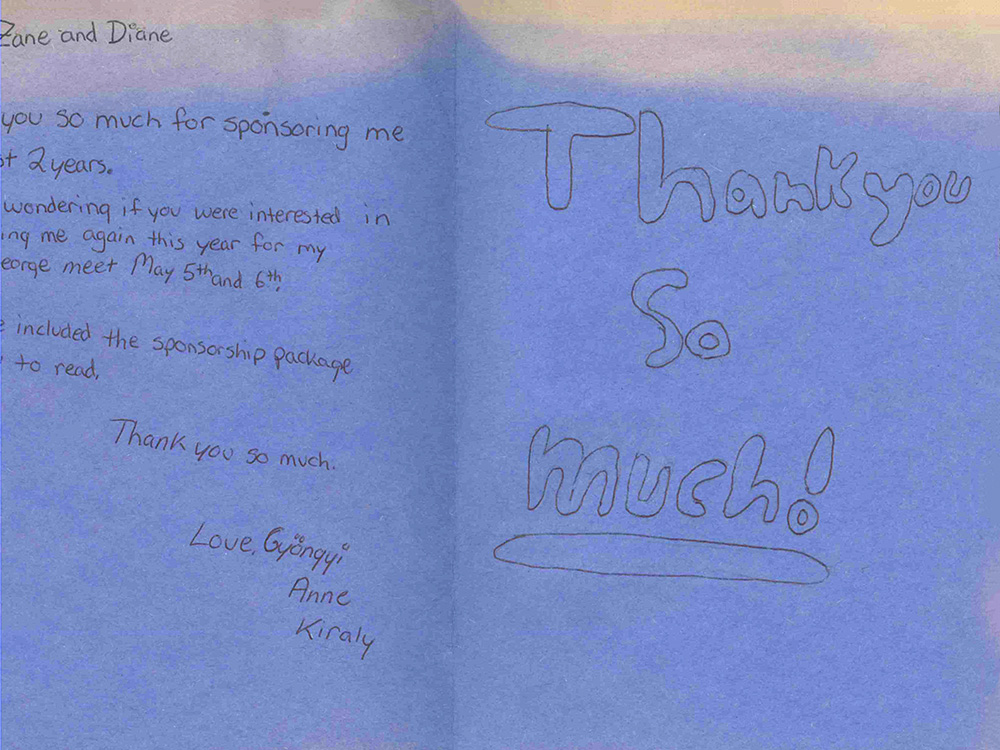 Zane and Diane
you so much for sponsoring me
2 years.
wondering if you were interested in
me again this year for my
meet May 5th and 6th.
included the sponsorship package
to read,
Thank you so much.
Love, Gyöngyi
Anne
Kiraly
Thank you
So
much!